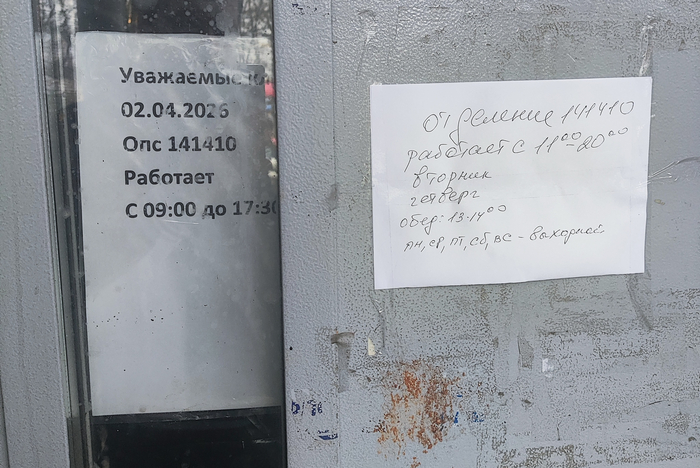 Уважаемые
02.04.2026
Опс 141410
Работает
С 09:00 до 17:30
отделение 141410
работает с 11⁰⁰-20⁰⁰
вторник
четверг
обед: 13-14⁰⁰
пн, ср, пт, сб, вс - выходной